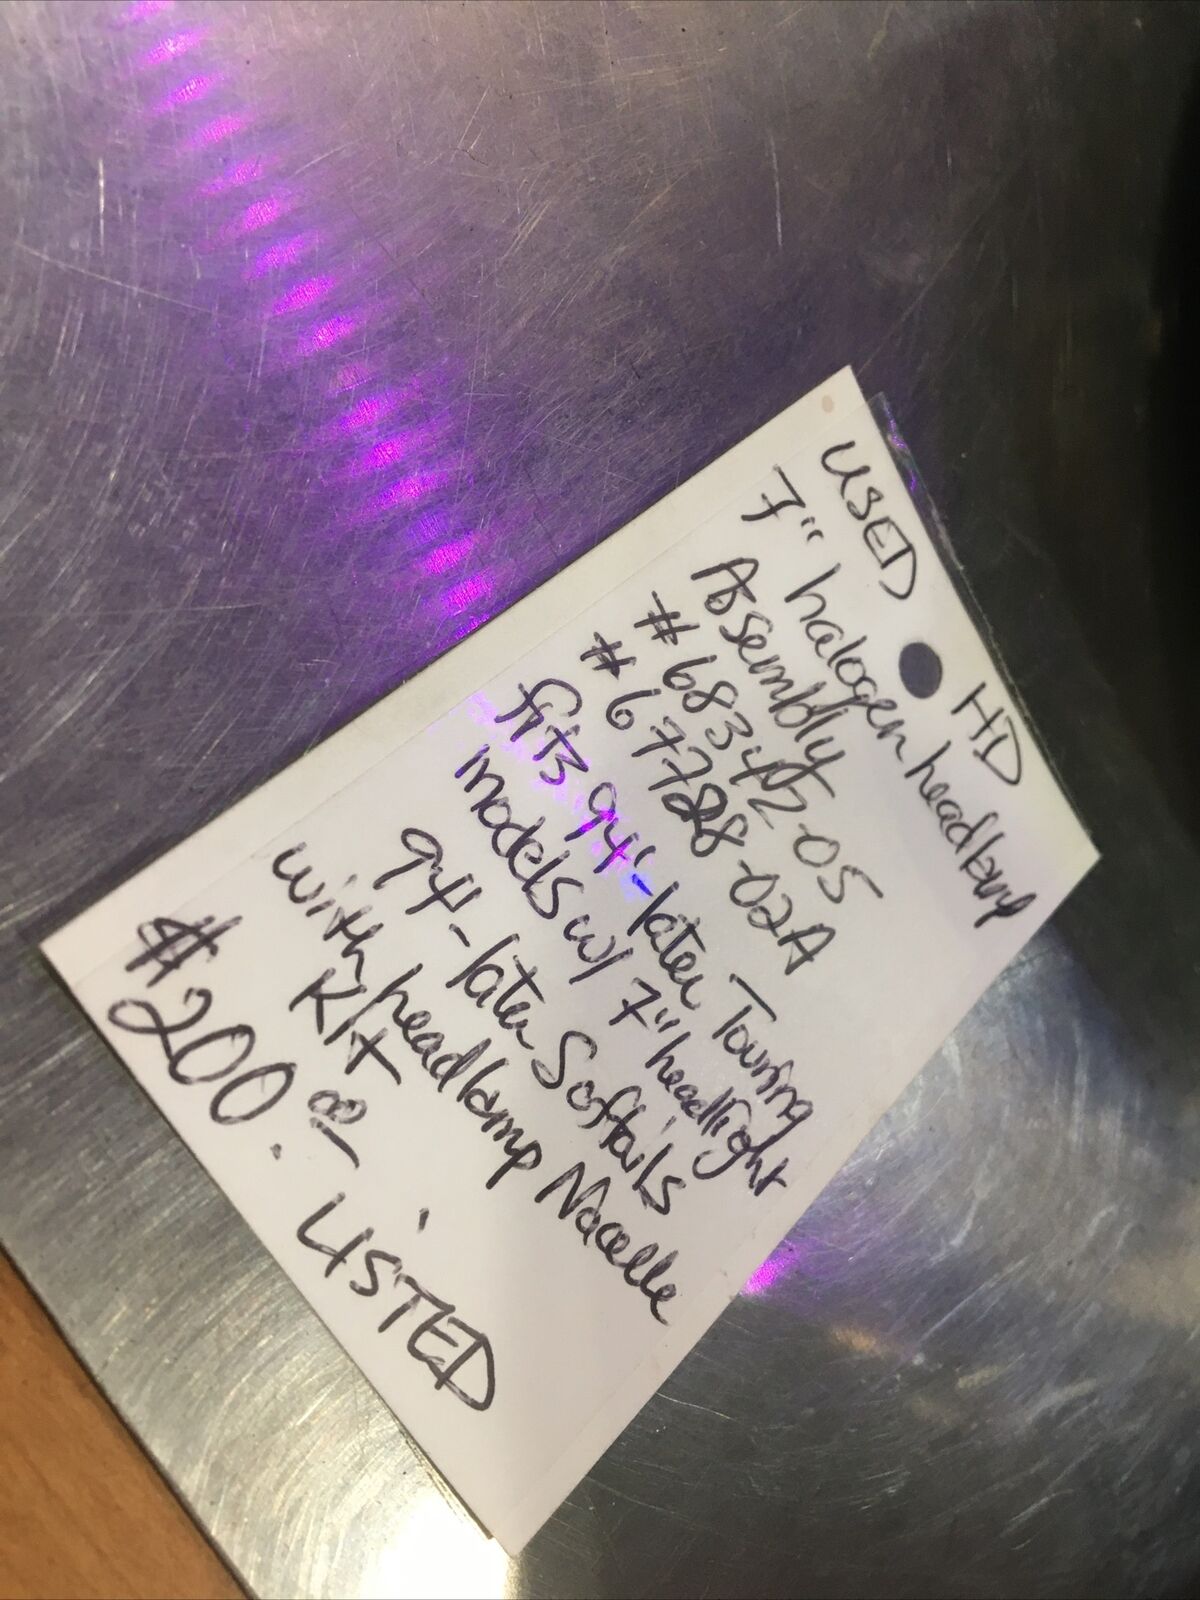 USED HD
7" halogen headlamp
Assembly
#68342-05
#67728-02A
fits 94'-later Touring
models w/ 7" headlight
94'-later Softails
with headlamp Nacelle
Kit
$200.00 LISTED